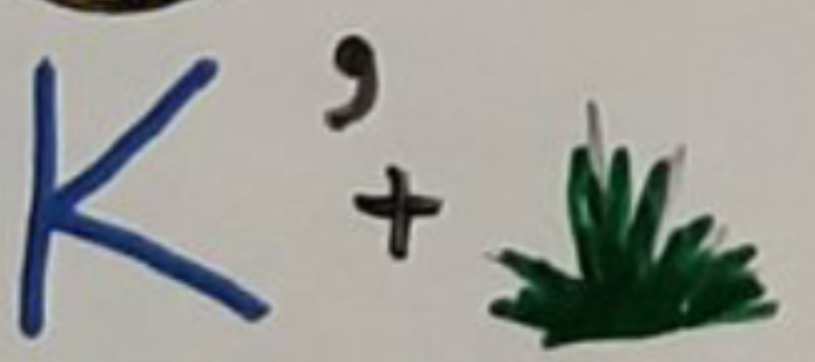 K ’ +